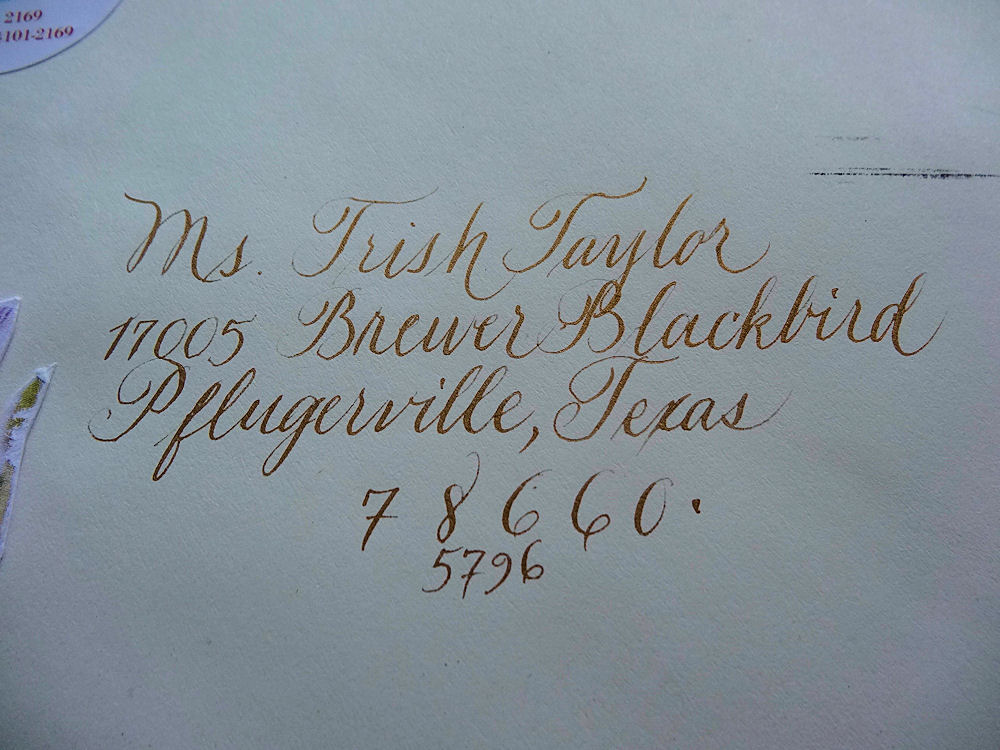 2169
101-2169
Ms. Trish Taylor
17005 Brewer Blackbird
Pflugerville, Texas
7 8 6 6 0.
5796